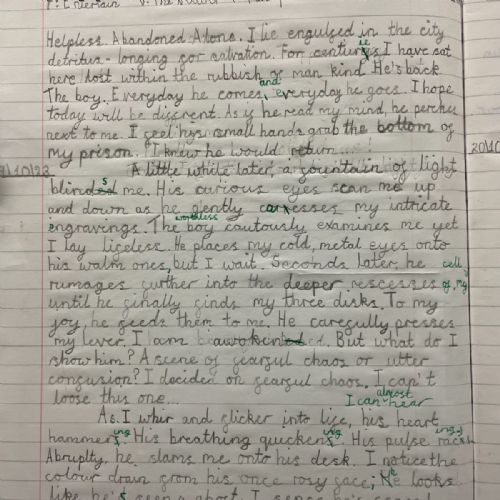 Entertain
Helpless. Abandoned. Alone. I lie engulfed in the city
detritus - longing for salvation. For centuries I have sat
here lost within the rubbish of man kind. He's back.
The boy. Everyday he comes, and everyday he goes. I hope
today will be different. As if he read my mind, he perches
next to me. I feel his small hands grab the bottom of
my prison. I knew he would return....!
A little while later, a fountain of light
blinds me. His curious eyes scan me up
and down as he gently caresses my intricate
engravings. The worthless boy cautously examines me yet
I lay lifeless. He places my cold, metal eyes onto
his walm ones, but I wait. Seconds later, he
rumages further into the deeper rescesses of my cell
until he finally finds my three disks. To my
joy, he feeds them to me. He carefully presses
my lever. I am awoken. But what do I
show him? A scene of fearful chaos or utter
confusion? I decided on fearful chaos. I can't
loose this one...
I can almost hear
As I whir and flicker into life, his heart
hammering. His breathing quickening. His pulse racing.
Abruplty, he slams me onto his desk. I notice the
colour drain from his once rosy face; He looks
like he's seen a ghost. I